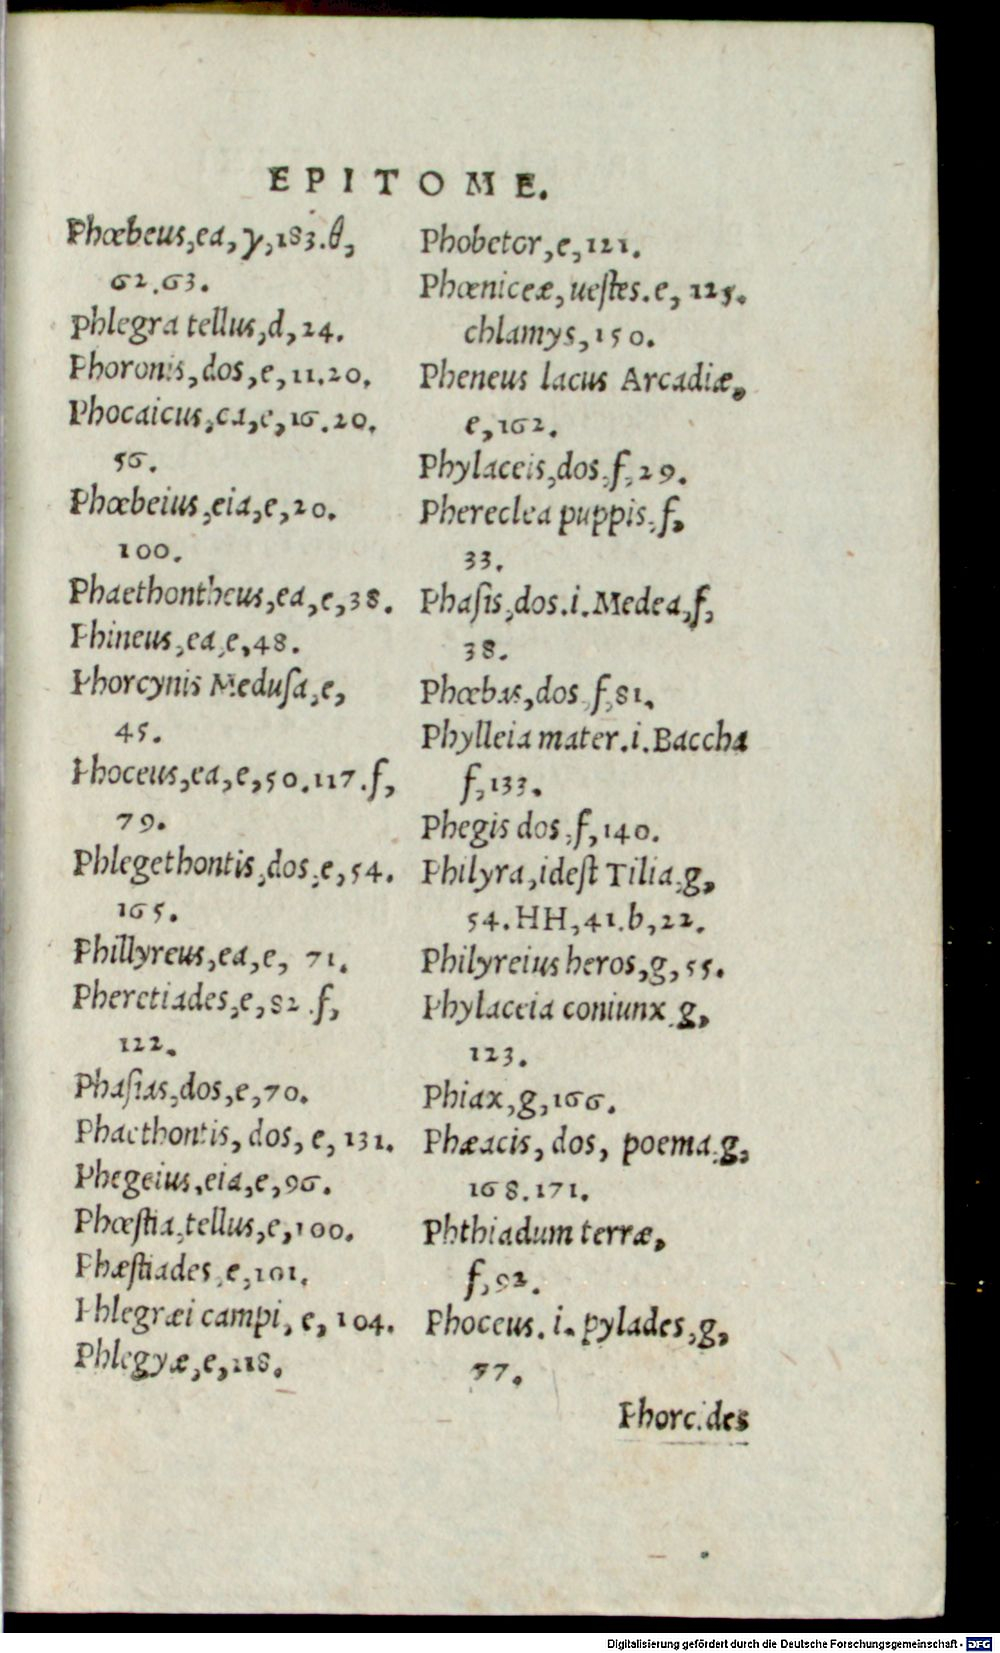 EPITOME.
Phœbeus,ea,γ,183.θ,
62.63.
phlegra tellus,d,24.
Phoronis,dos,e,11.20.
Phocaicus,ca,e,16.20.
56.
Phœbeius,eia,e,20.
100.
Phaethontheus,ea,e,38.
Phineus,ea,e,48.
Phorcynis Meduſa,e,
45.
Phoceus,ea,e,50.117.f,
79.
Phlegethontis,dos,e,54.
165.
Phillyreus,ea,e, 71.
Pheretiades,e,82.f,
122.
Phaſias,dos,e,70.
Phaethontis, dos, e, 131.
Phegeius,eia,e,96.
Phœſtia,tellus,e,100.
Phæſtiades,e,101.
Phlegræi campi, e, 104.
Phlegyæ,e,118.
Phobetor,e,121.
Phœniceæ,ueſtes.e, 125.
chlamys,150.
Pheneus lacus Arcadiæ,
e,162.
Phylaceis,dos,f,29.
Phereclea puppis,f,
33.
Phaſis,dos.i.Medea,f,
38.
Phœbas,dos,f,81.
Phylleia mater.i.Baccha
f,133.
Phegis dos,f,140.
Philyra,ideſt Tilia,g,
54.HH,41.b,22.
Philyreius heros,g,55.
Phylaceia coniunx,g,
123.
Phiax,g,166.
Phæacis, dos, poema,g,
168.171.
Phthiadum terræ,
f,92.
Phoceus. i. pylades,g,
57.
Phorcides
Digitalisierung gefördert durch die Deutsche Forschungsgemeinschaft - DFG